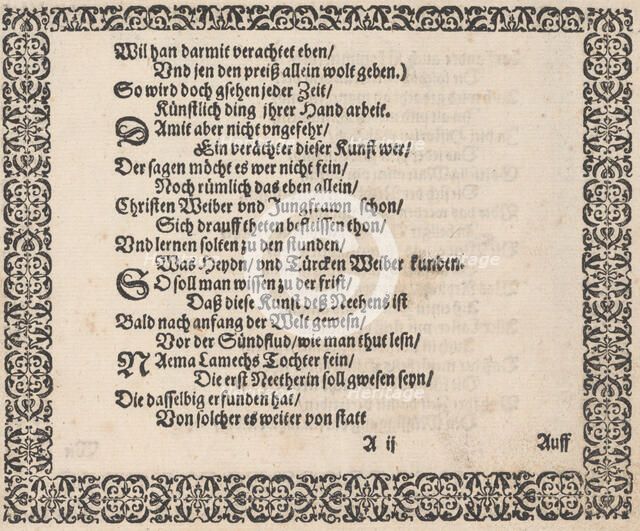 Wil han darmit verachtet eben/
Vnd jen den preiß allein wolt geben.)
So wird doch gsehen jeder Zeit/
Künstlich ding jhrer Hand arbeit.
DAmit aber nicht vngefehr/
Ein verächter dieser Kunst wer/
Der sagen möcht es wer nicht fein/
Noch rümlich das eben allein/
Christen Weiber vnd Jungfrawn schon/
Sich drauff theten befleissen thon/
Vnd lernen solten zu den stunden/
Was Heydn/ vnd Türcken Weiber kunden.
SO soll man wissen zu der frist/
Daß diese Kunst deß Neehens ist
Bald nach anfang der Welt gewesn/
Vor der Sündflud/ wie man thut lesn/
NAema Lamechs Tochter fein/
Die erst Neetherin soll gwesen seyn/
Die dasselbig erfunden hat/
Von solcher es weiter von statt
A ij
Auff
Heritage
Heritage
Heritage
Heritage